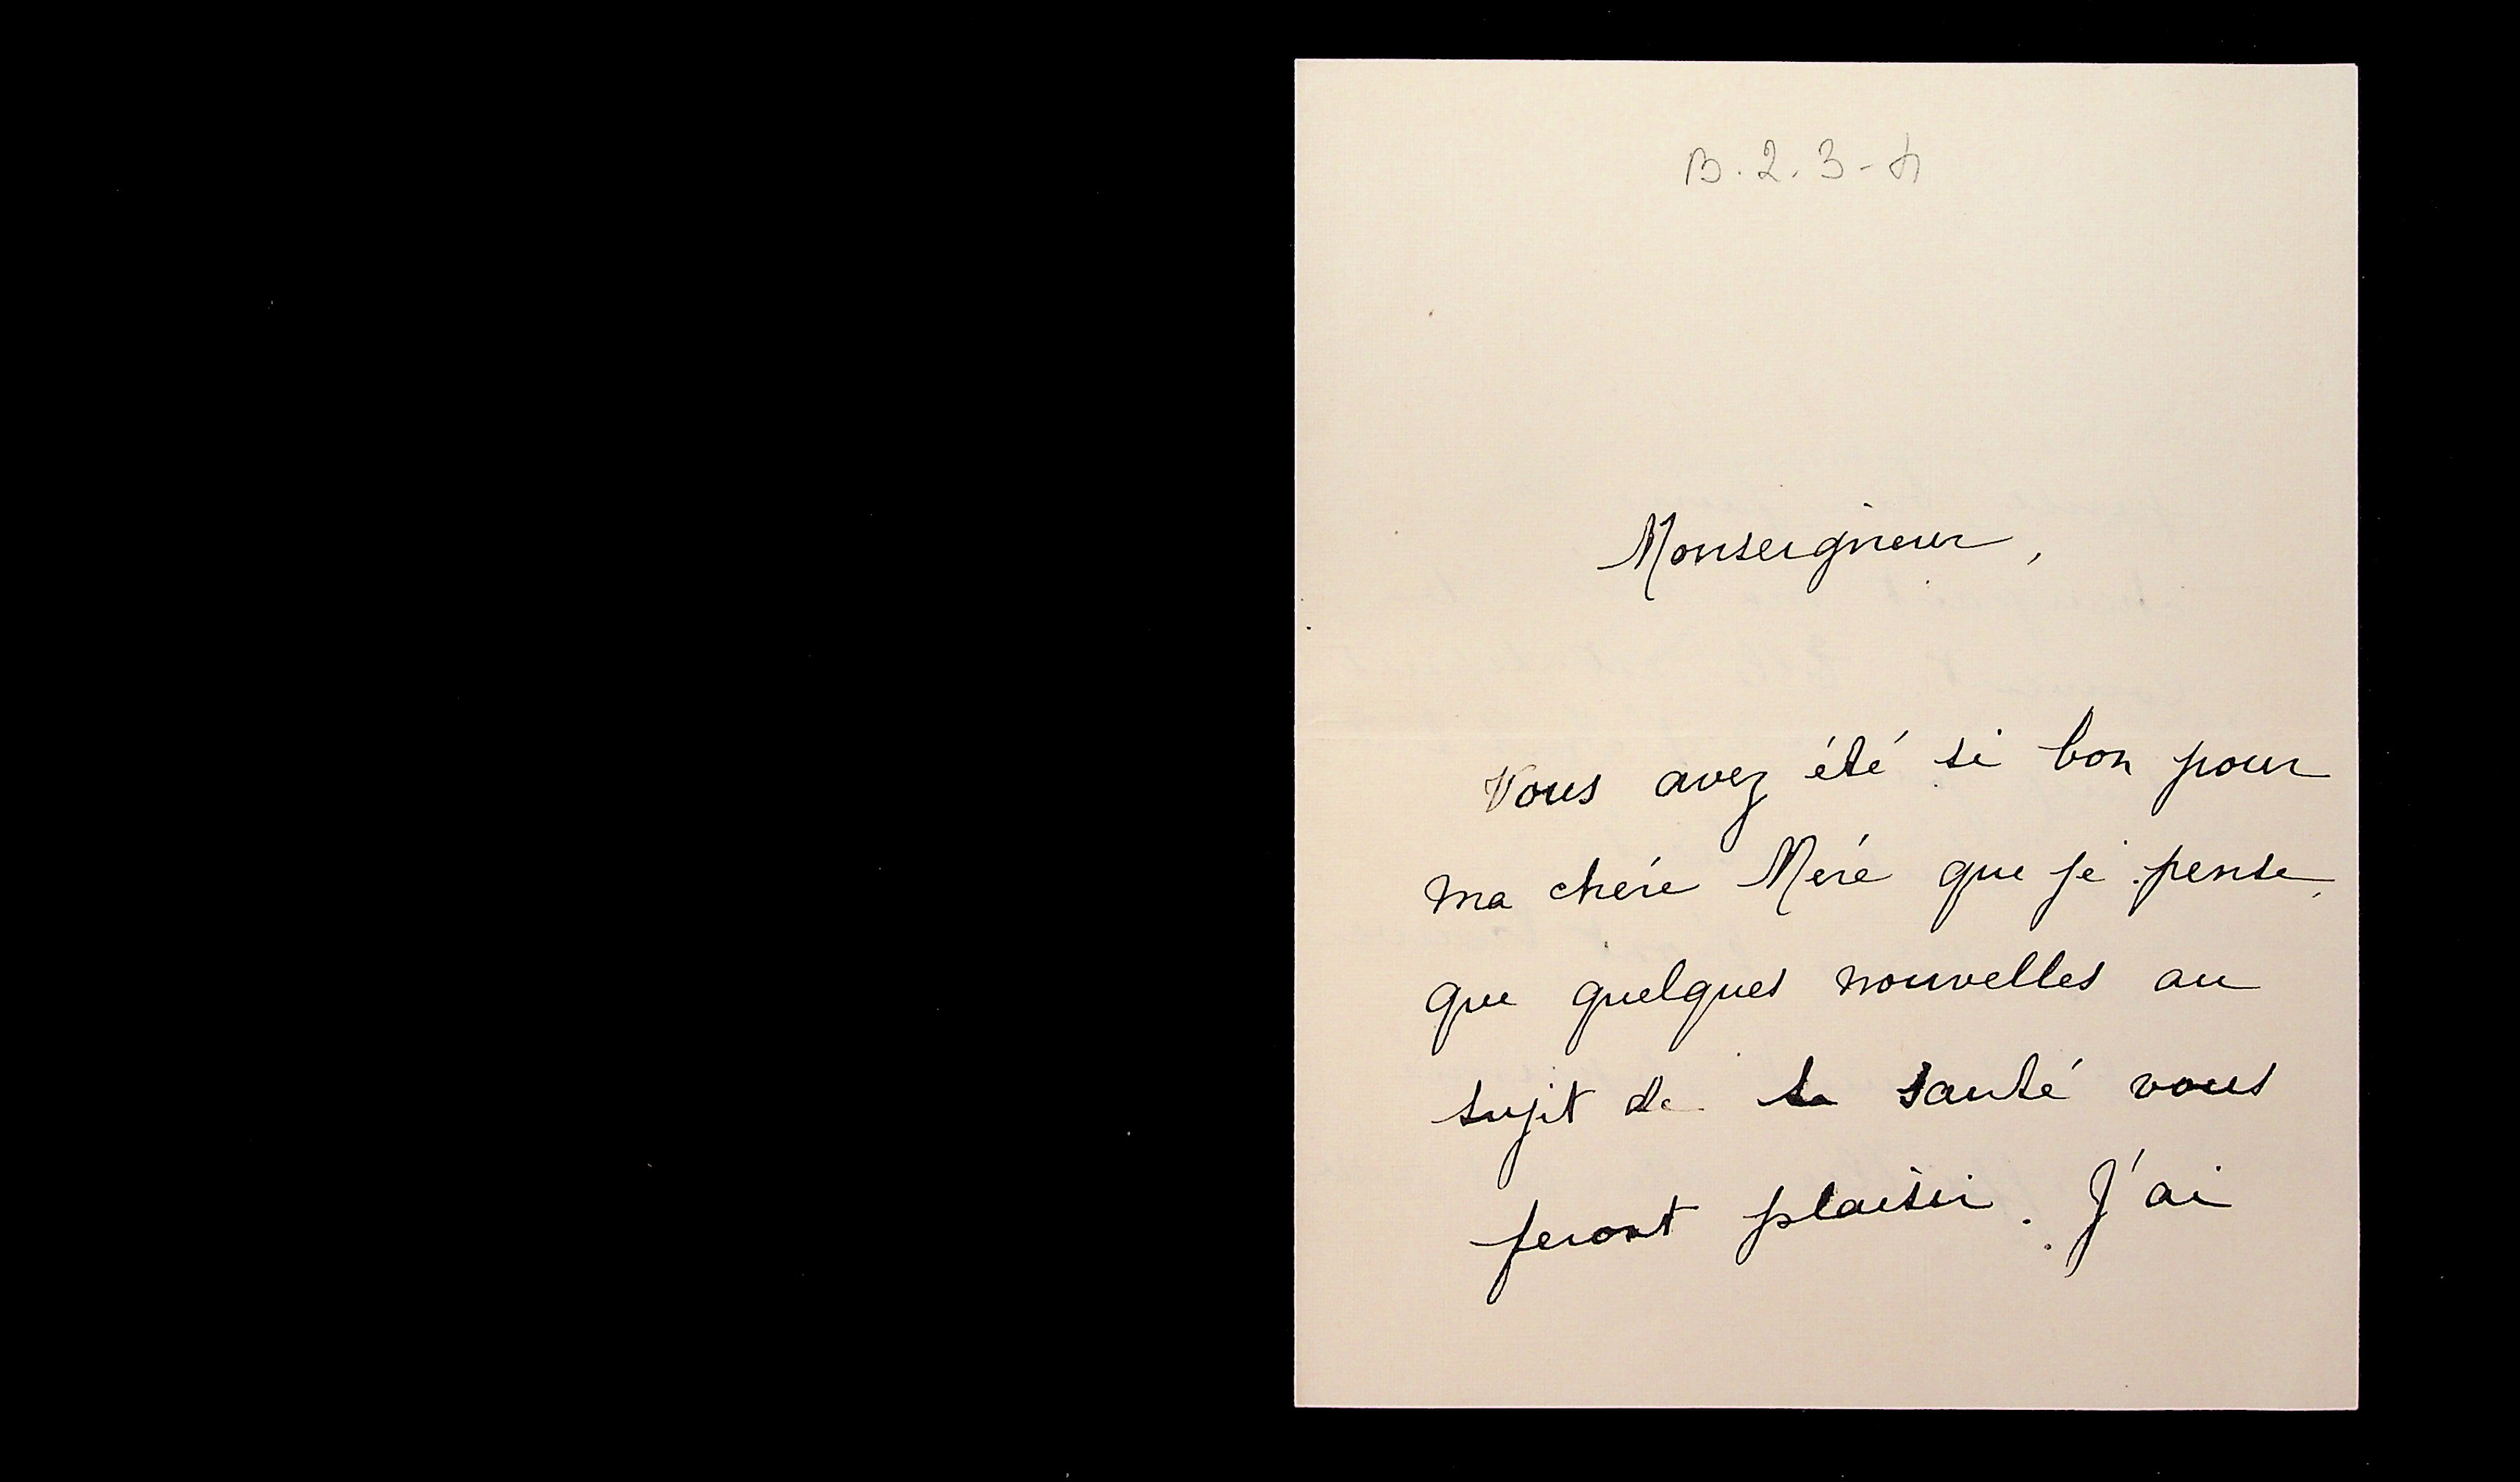 B.2.3-4
Monseigneur,
Vous avez été si bon pour
ma chére Mére que je pense,
que quelques nouvelles au
sujet de sa santé vous
feront plaisir. J'ai